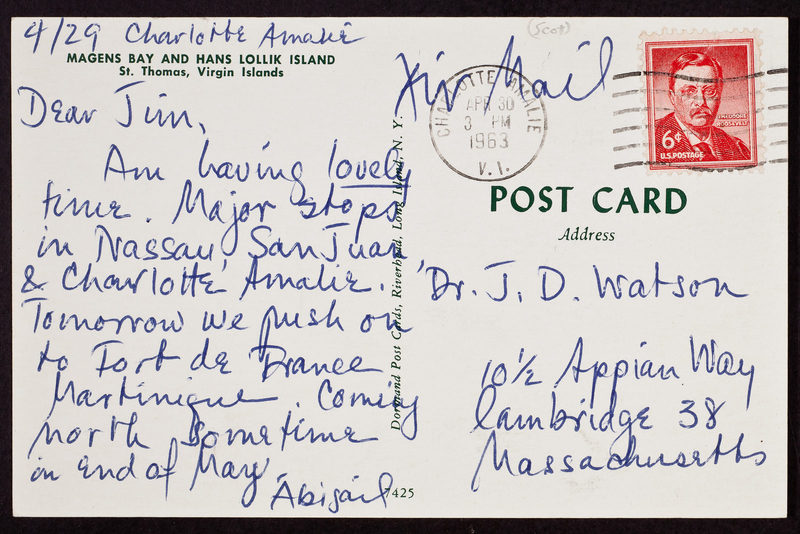 4/29 Charlotte Amalie
MAGENS BAY AND HANS LOLLIK ISLAND
St. Thomas, Virgin Islands
Dear Jim,
Am having lovely
time. Major stops
in Nassau, San Juan
& Charlotte Amalie.
Tomorrow we push on
to Fort de France
Martinique. Coming
north sometime
in end of May
Abigail
7425
Dormand Post Cards, Riverhead, Long Island, N. Y.
(Scot)
Air Mail
CHARLOTTE AMALIE
APR 30
3 PM
1963
V. I.
THEODORE
ROOSEVELT
6¢
U.S. POSTAGE
POST CARD
Address
Dr. J. D. Watson
10½ Appian Way
Cambridge 38
Massachusetts